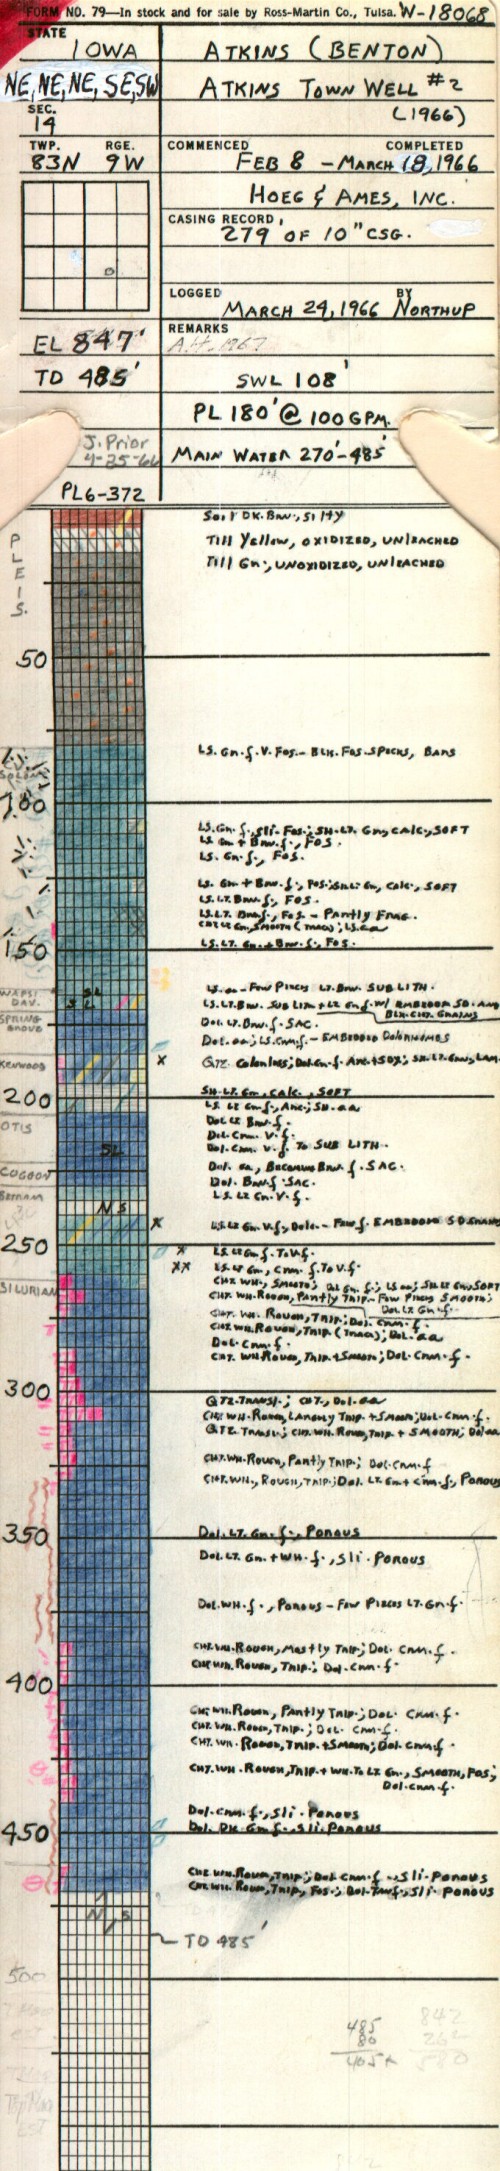 FORM NO. 79—In stock and for sale by Ross-Martin Co., Tulsa. W-18068
STATE
IOWA
ATKINS (BENTON)
NE, NE, NE, SE, SW
ATKINS TOWN WELL #2
SEC.
14
(1966)
TWP. RGE.
83N 9W
COMMENCED COMPLETED
FEB 8 - MARCH 18, 1966
HOEG & AMES, INC.
CASING RECORD
279' OF 10" CSG.
LOGGED BY
MARCH 24, 1966 NORTHUP
EL 847'
REMARKS
A.H. 1967
TD 485'
SWL 108'
PL 180' @ 100 GPM.
J. Prior
4-25-66
MAIN WATER 270'-485'
PL6-372
PLEIS.
Soil DK. Brn., Silty
Till Yellow, OXIDIZED, UNLEACHED
Till Gn., UNOXIDIZED, UNLEACHED
50
LS. Gn. f. V. Fos.- BLK. Fos. SPECKS, BANS
100
LS. Gn. f., Sli. Fos.; SH. LT. Gn., CALC., SOFT
LS. Gn + Brn. f., FOS.
LS. Gn. f., FOS.
LS. Gn + Brn. f., FOS.; SH. LT. Gn, CALC., SOFT
LS. LT. Brn. f., FOS.
LS. LT. Brn. f., FOS - PARTLY FRAG.
CHT. LT. Gn, SMOOTH (TRACE); LS. aa
150
LS. LT. Gn + Brn. f., FOS.
WAPSI
DAV.
SL
S L
LS. aa - FEW PIECES LT. Brn. SUB LITH.
LS. LT. Brn. SUB LITH + LT Gn f. W/ EMBEDDED SD. AND
BLK. CHT. GRAINS
SPRING
GROVE
DOL. LT. Brn. f. SAC.
DOL. aa; LS. Crm. f. - EMBEDDED DOLORHOMBS
KENWOOD
X
QTZ. COLORLESS; DOL. Gn. f. ARG. + SDY.; SH. LT. Gnn, LAM.
200
SH. LT. Gn., CALC., SOFT
LS. LT Gn. f., ARG.; SH. aa
OTIS
DOL. LT Brn. f.
DOL. Crm. V. f.
DOL. Crm. V. f. TO SUB LITH.
SL
DOL. aa, BECOMING Brn. f. SAC.
COGGON
DOL. Brn. f. SAC.
BERTRAM
LS. LT. Gn. V. f.
N S
X
LS. LT Gn. V. f., DOLO. - FEW f. EMBEDDED SD GRAINS
250
X
LS. LT Gn. f. TO V. f.
XX
LS. LT Gn., Crm. f. TO V. f.
SILURIAN
CHT. WH., SMOOTH; DOL Gn. f.; LS aa; SH. LT Gn, SOFT
CHT. WH. ROUGH, PARTLY TRIP. - FEW PIECES SMOOTH;
DOL LT Gn. f.
CHT. WH. ROUGH, TRIP.; DOL. Crm. f.
CHT. WH. ROUGH, TRIP. (TRACE); DOL. aa
DOL. Crm. f.
CHT. WH. ROUGH, TRIP. + SMOOTH; DOL. Crm. f.
300
QTZ. TRANSL.; CHT., DOL. aa
CHT. WH. ROUGH, LARGELY TRIP. + SMOOTH; DOL. Crm. f.
QTZ. TRANSL.; CHT. WH. ROUGH, TRIP. + SMOOTH; DOL aa
CHT. WH. ROUGH, PARTLY TRIP.; DOL. Crm. f
CHT. WH., ROUGH, TRIP.; DOL. LT Gn + Crm. f., POROUS
350
DOL. LT. Gn. f., POROUS
DOL. LT. Gn. + WH. f., Sli. POROUS
DOL. WH. f., POROUS - FEW PIECES LT. Gn. f.
CHT. WH. ROUGH, MOSTLY TRIP.; DOL. Crm. f.
CHT. WH. ROUGH, TRIP.; DOL. Crm. f.
400
CHT. WH. ROUGH, PARTLY TRIP.; DOL. Crm. f.
CHT. WH. ROUGH, TRIP.; DOL. Crm. f.
CHT. WH. ROUGH, TRIP. + SMOOTH; DOL. Crm. f.
CHT. WH. ROUGH, TRIP. + WH. TO LT Gn., SMOOTH, FOS;
DOL. Crm. f.
DOL. Crm. f., Sli. POROUS
450
DOL. DK Gn. f., Sli. POROUS
CHT. WH. ROUGH, TRIP.; DOL. Crm. f., Sli. POROUS
CHT. WH. ROUGH, TRIP., FOS.; DOL. TAN f., Sli. POROUS
N S
TD 485'
500
485
80
405+
842
262
580